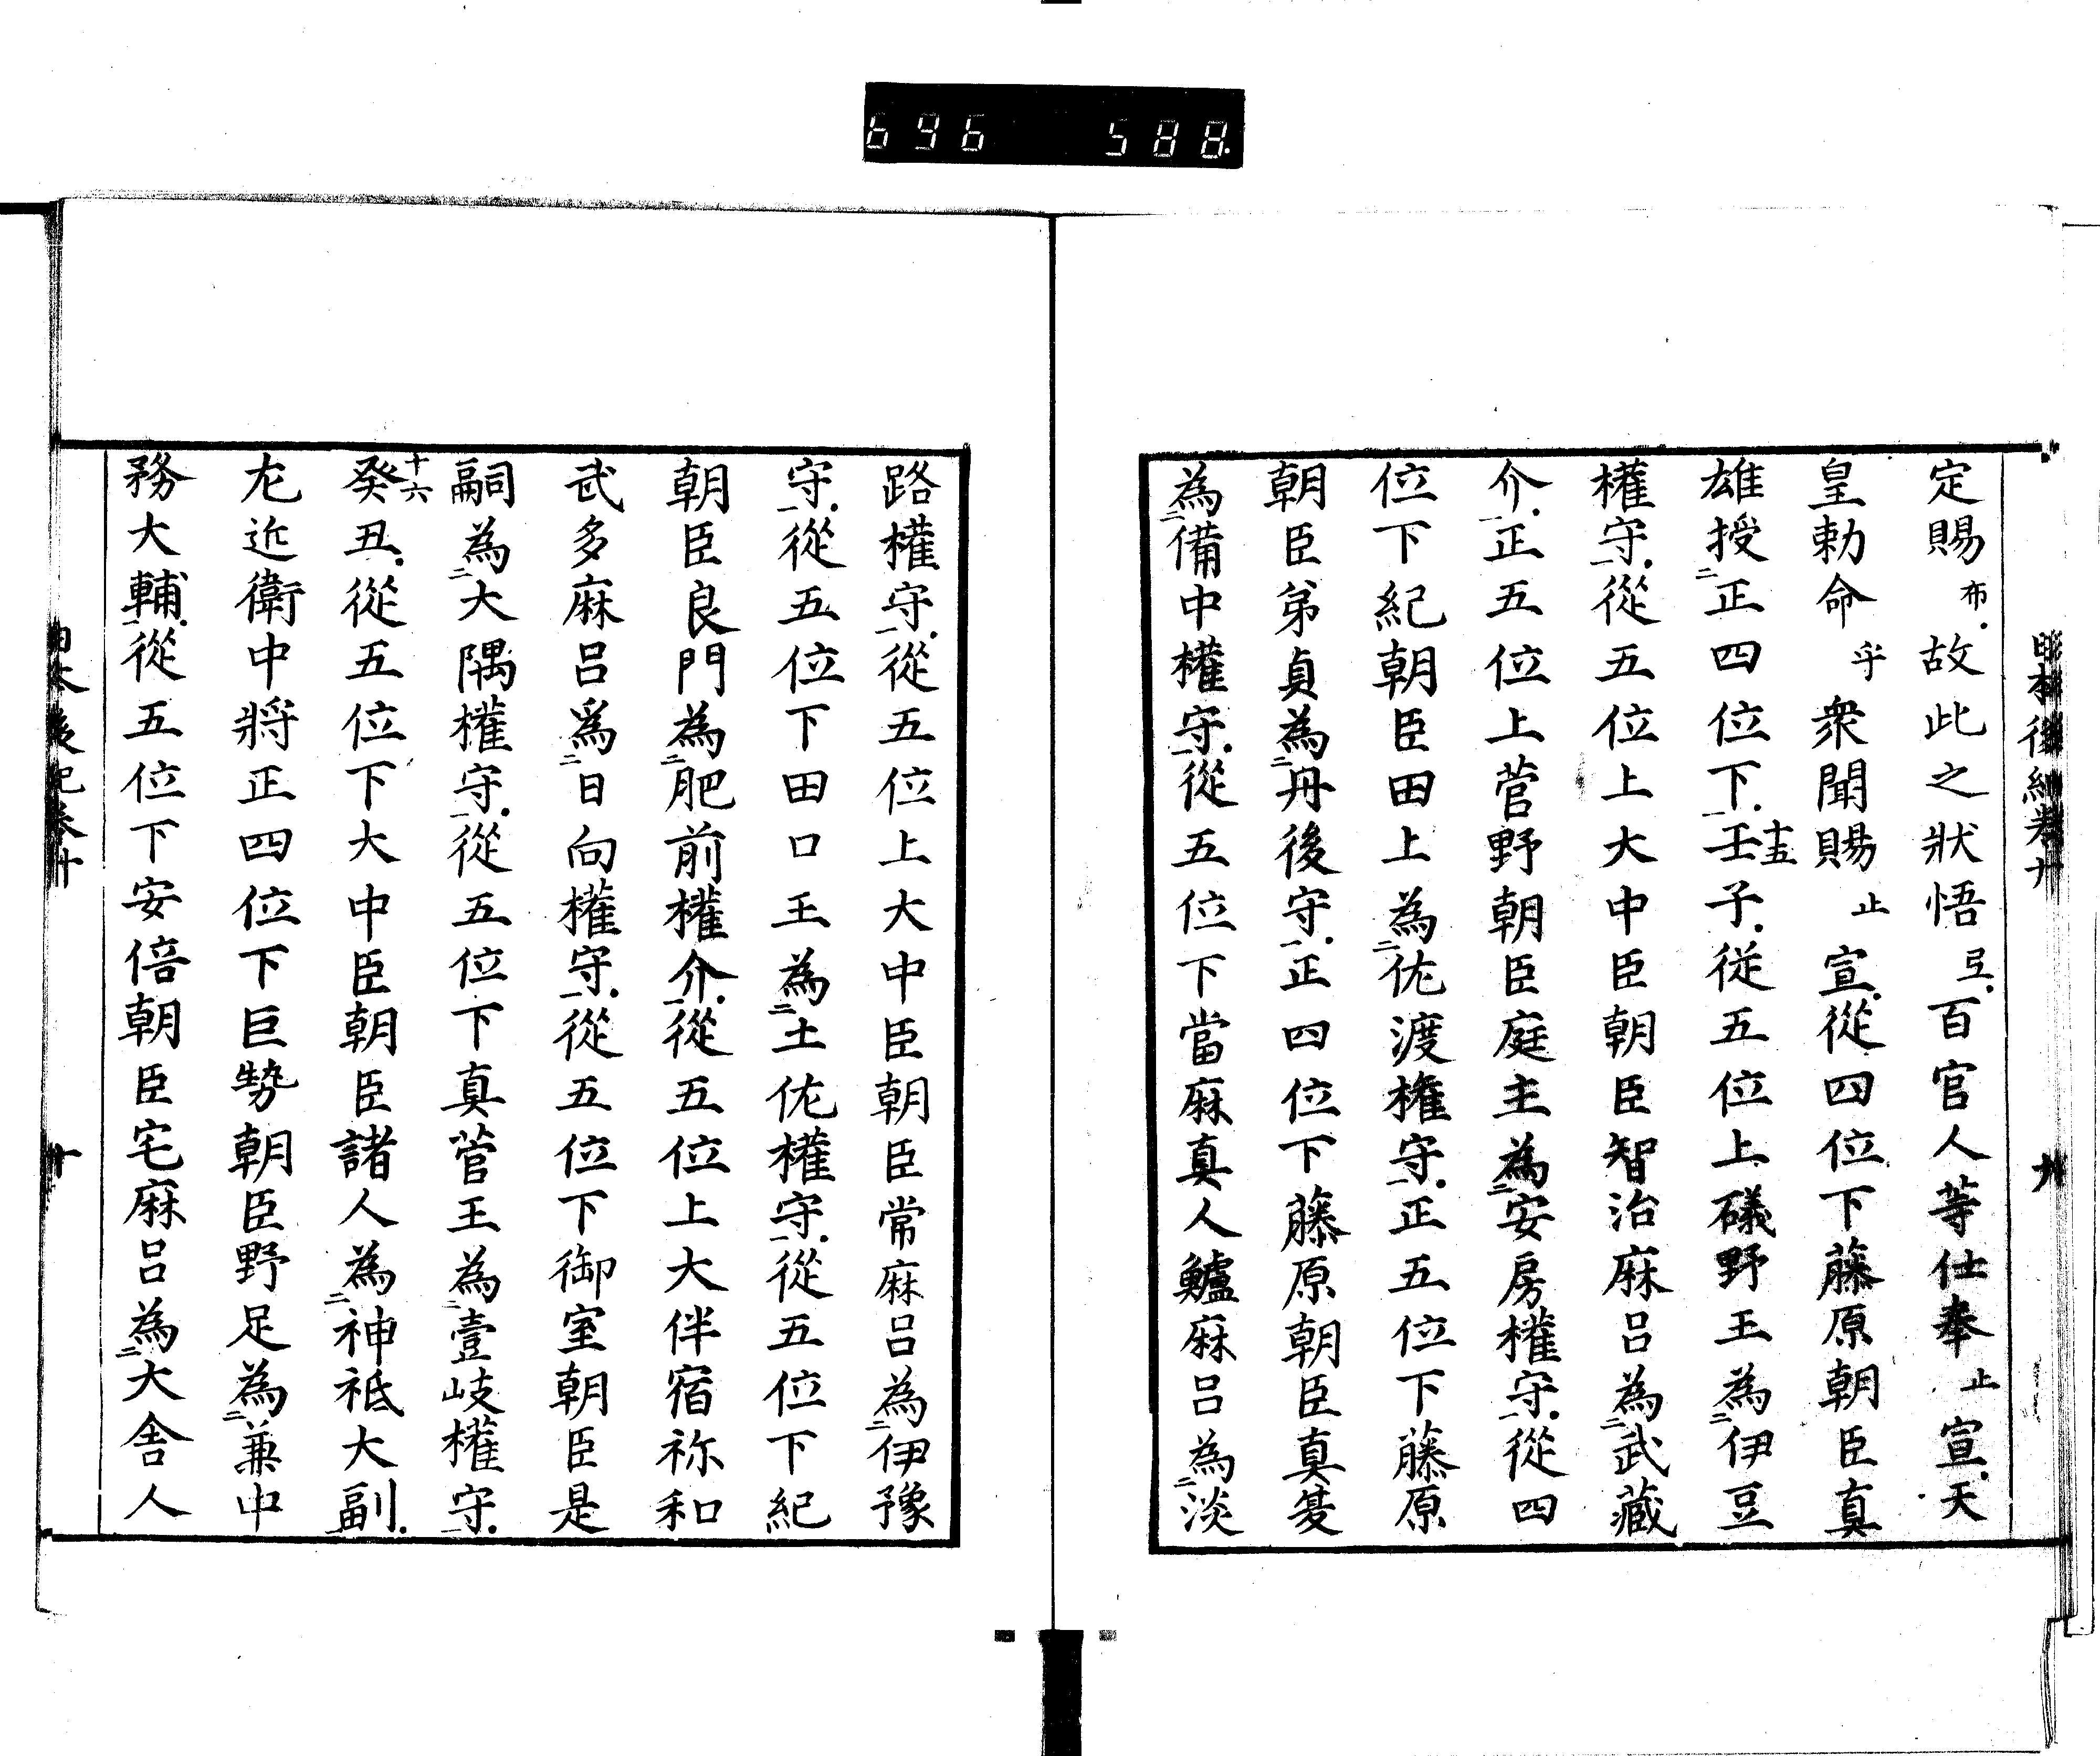 696 588
定賜布故此之狀悟弖百官人等仕奉止宣天
皇勅命乎衆聞賜止宣從四位下藤原朝臣真
雄授二正四位下一十五壬子從五位上礒野王為二伊豆
權守一從五位上大中臣朝臣智治麻呂為二武藏
介一正五位上菅野朝臣庭主為二安房權守一從四
位下紀朝臣田上為二佐渡權守一正五位下藤原
朝臣弟貞為二丹後守一正四位下藤原朝臣真夏
為二備中權守一從五位下當麻真人鱸麻呂為二淡
路權守一從五位上大中臣朝臣常麻呂為二伊豫
守一從五位下田口王為二土佐權守一從五位下紀
朝臣良門為二肥前權介一從五位上大伴宿祢和
武多麻呂爲二日向權守一從五位下御室朝臣是
嗣為二大隅權守一從五位下真菅王為二壹岐權守一
十六癸丑從五位下大中臣朝臣諸人為二神祇大副一
左近衛中將正四位下巨勢朝臣野足為二兼中
務大輔一從五位下安倍朝臣宅麻呂為二大舍人